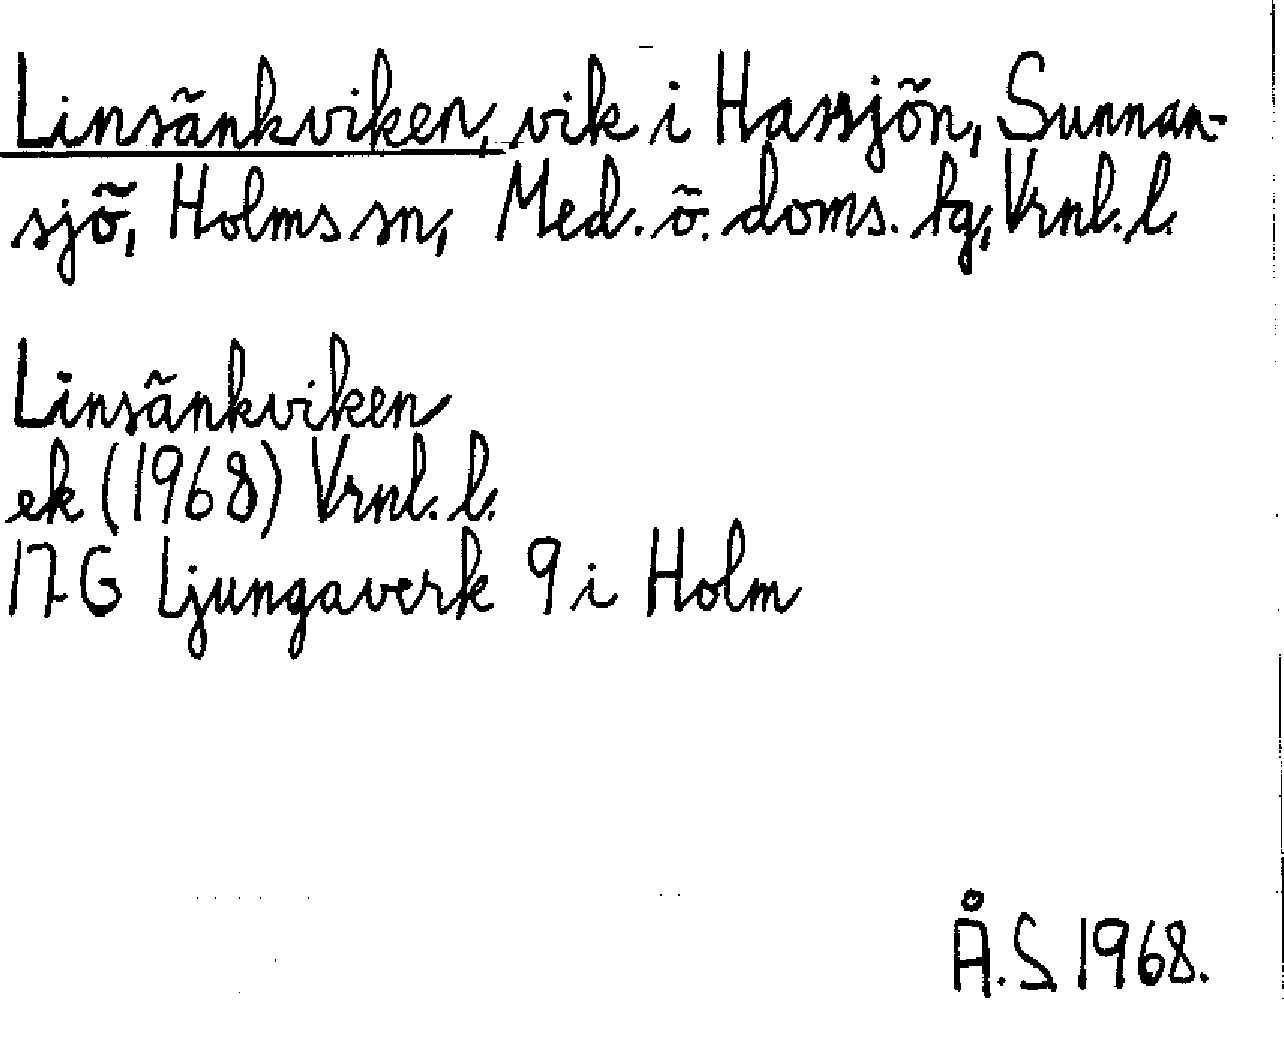 Linsänkviken, vik i Hassjön, Sunnan-
sjö, Holms sn, Med. ö. doms. tg, Vrnl. l.
Linsänkviken
ek (1968) Vrnl. l.
17G Ljungaverk 9 i Holm
Å.S 1968.